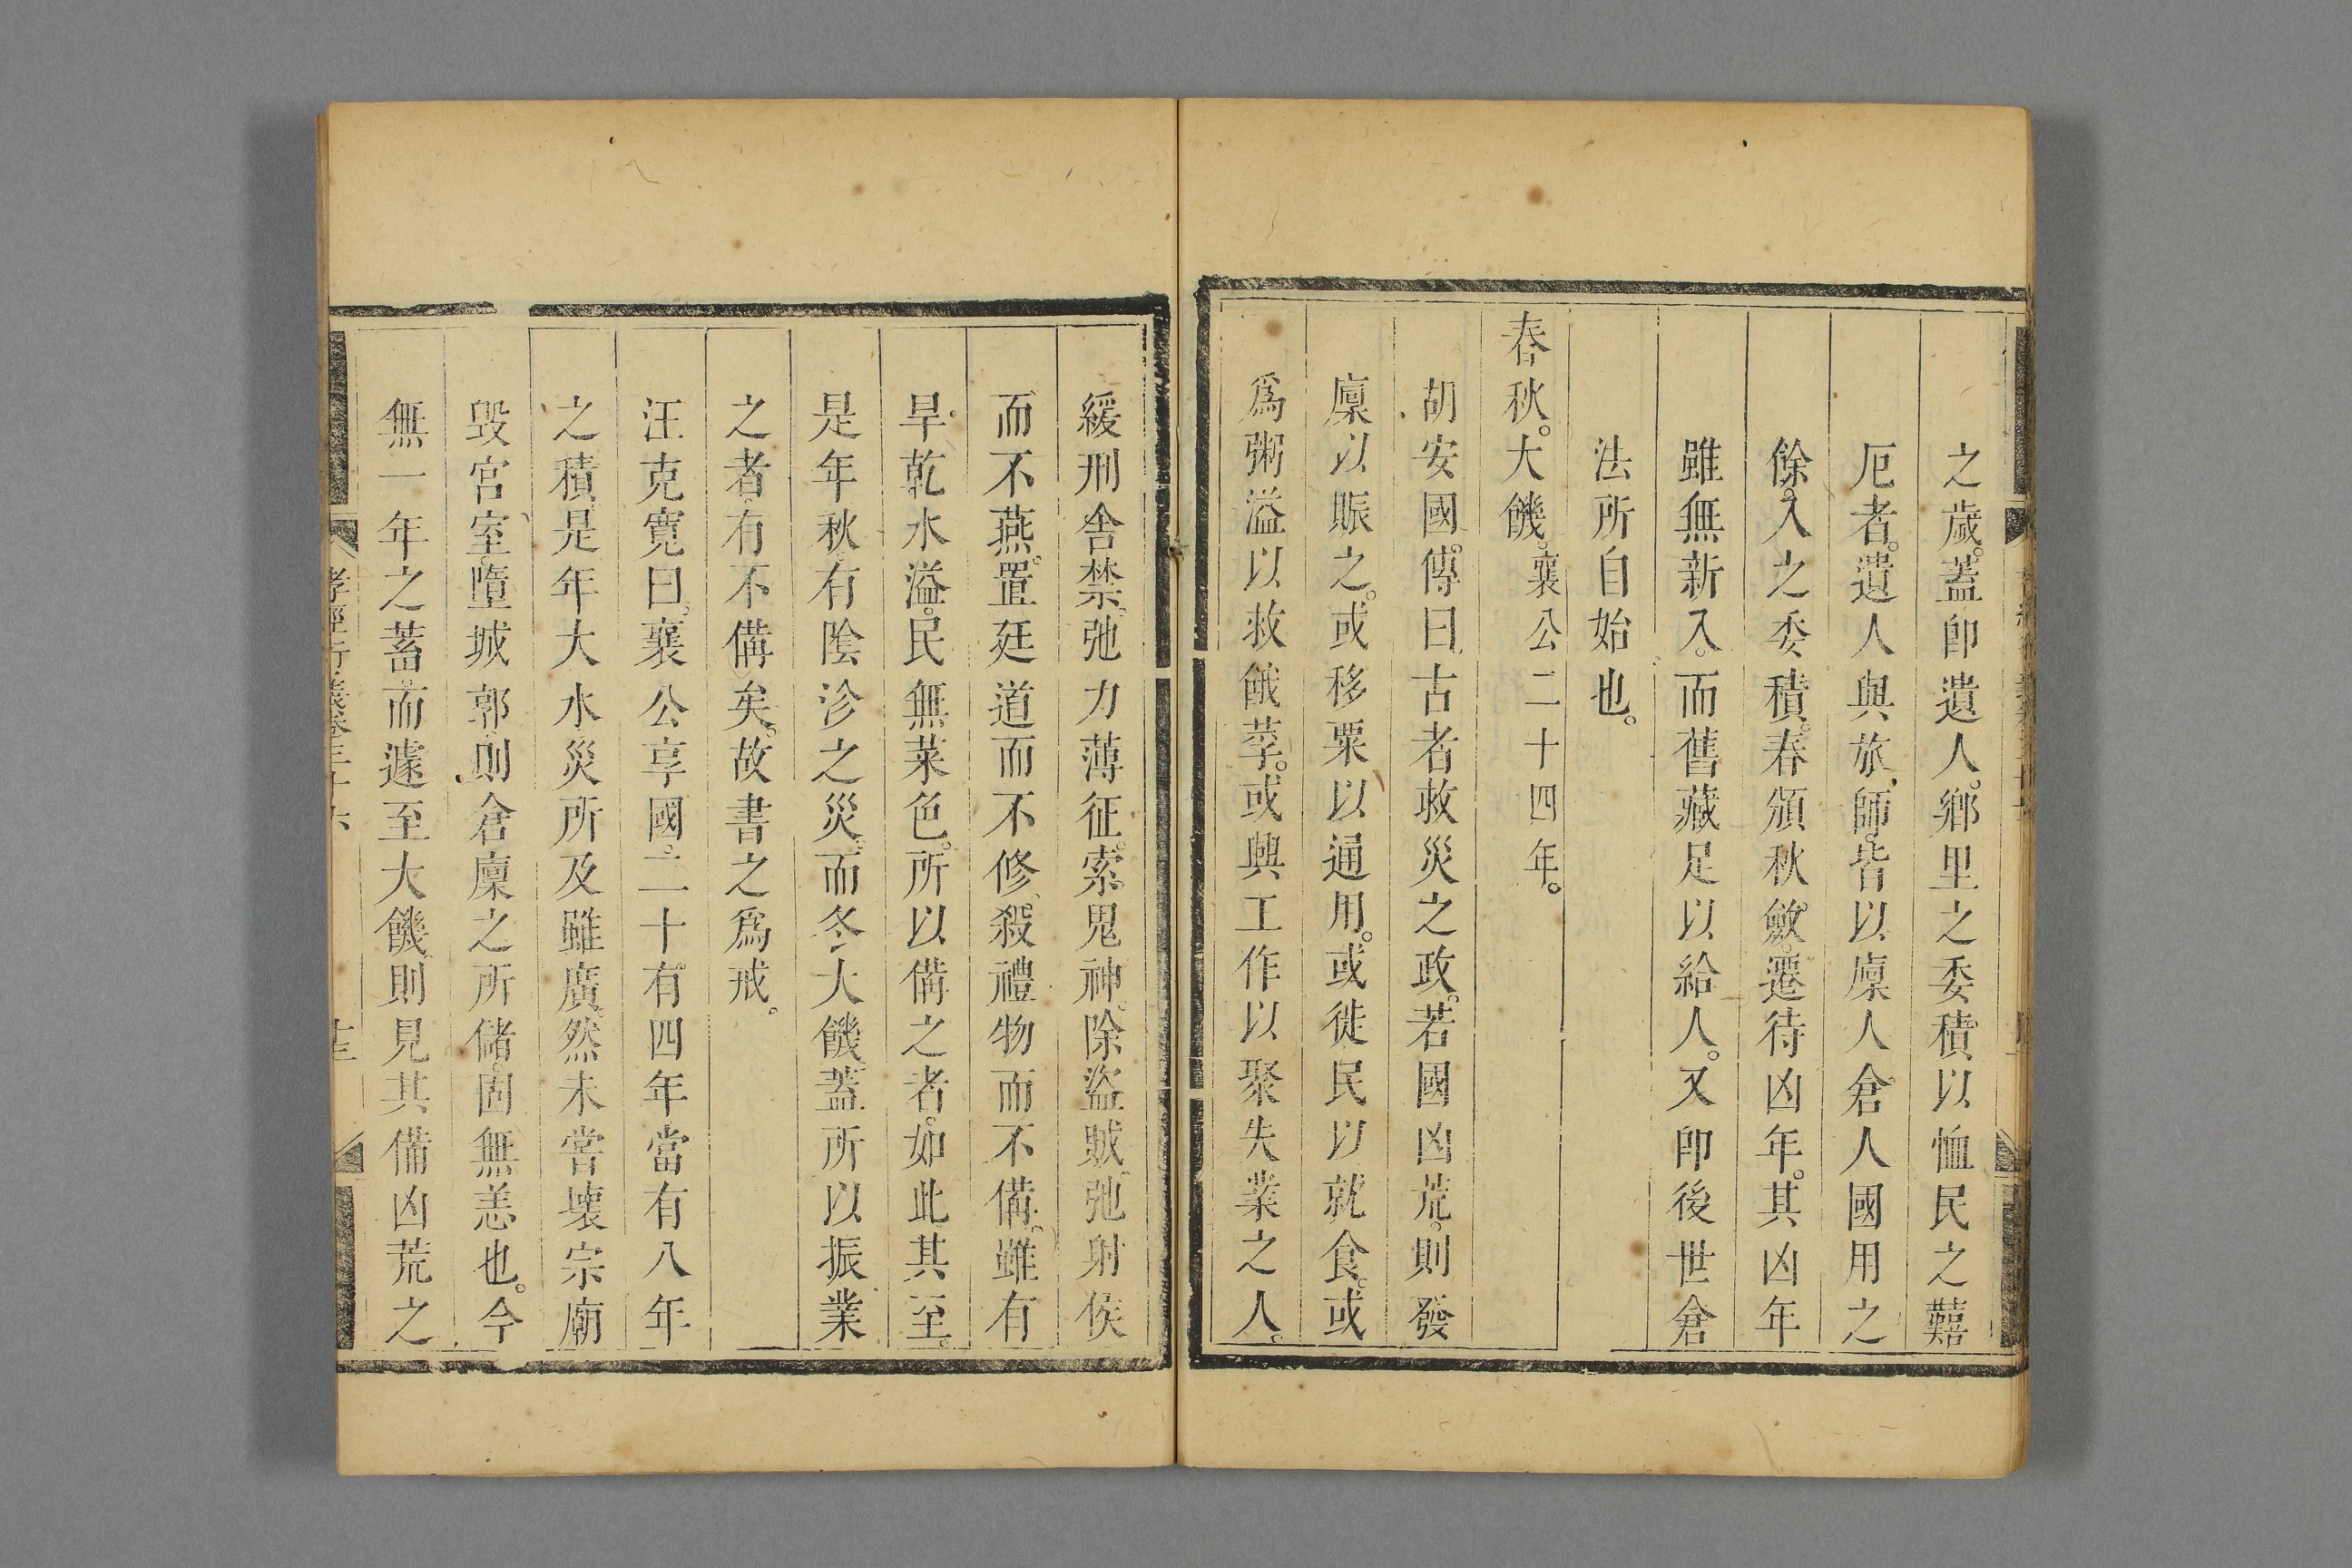 之歲。蓋卽遺人。鄉里之委積以恤民之囏
厄者。遺人與旅師。皆以廩人倉人國用之
餘。入之委積。春頒秋斂。遷待凶年。其凶年
雖無新入。而舊藏足以給人。又卽後世倉
法所自始也。
春秋。大饑。襄公二十四年。
胡安國。傳曰。古者救災之政。若國凶荒。則發
廩以賑之。或移粟以通用。或徙民以就食。或
爲粥溢以救餓莩。或興工作以聚失業之人。
緩刑舍禁。弛力薄征。索鬼神。除盜賊。弛射侯
而不燕。置廷道而不修。殺禮物而不備。雖有
旱乾水溢。民無菜色。所以備之者。如此其至。
是年秋有陰沴之災。而冬大饑。蓋所以振業
之者。有不備矣。故書之爲戒。
汪克寬曰。襄公享國。二十有四年當有八年
之積。是年大水災所及雖廣。然未嘗壞宗廟
毀宮室。墮城郭。則倉廩之所儲。固無恙也。今
無一年之蓄。而遽至大饑。則見其備凶荒之
孝經衍義卷三十六